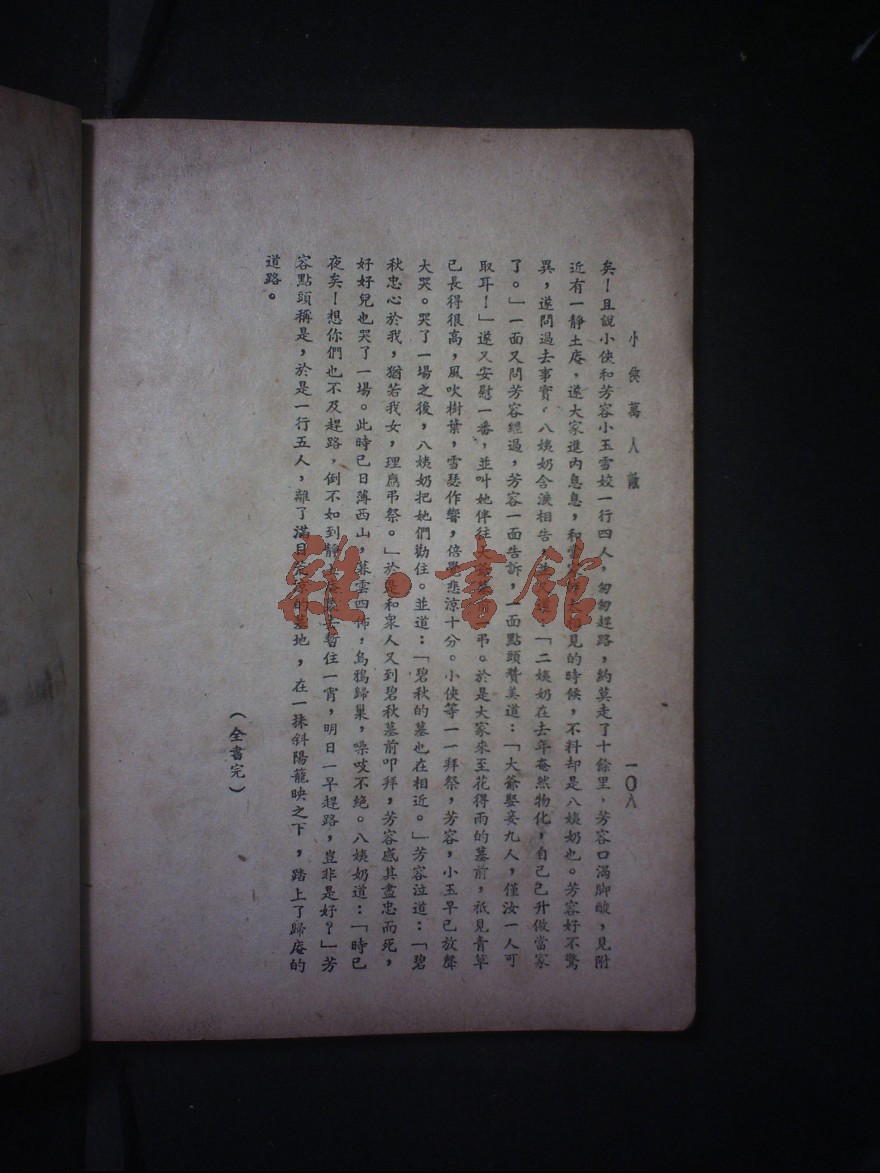 小俠萬人敵
一〇八
矣！且說小俠和芳容小玉雪姣一行四人，匆匆趕路，約莫走了十餘里，芳容口渴脚酸，見附
近有一靜土庵，遂大家進內息息，和當家師太相見的時候，不料却是八姨奶也。芳容好不驚
異，遂問過去事實，八姨奶含淚相告，道：「二姨奶在去年奄然物化，自己已升做當家
了。」一面又問芳容經過，芳容一面告訴，一面點頭贊美道：「大爺娶妾九人，僅汝一人可
取耳！」遂又安慰一番，並叫她伴往大爺墓前一弔。於是大家來至花得雨的墓前，祇見青草
已長得很高，風吹樹葉，雪瑟作響，倍覺悲涼十分。小俠等一一拜祭，芳容，小玉早已放聲
大哭。哭了一場之後，八姨奶把她們勸住。並道：「碧秋的墓也在相近。」芳容泣道：「碧
秋忠心於我，猶若我女，理應弔祭。」於是和衆人又到碧秋墓前叩拜，芳容感其盡忠而死，
好好兒也哭了一場。此時已日薄西山，暮雲四佈，烏鴉歸巢，噪吱不絕。八姨奶道：「時已
夜矣！想你們也不及趕路，倒不如到靜土庵去暫住一宵，明日一早趕路，豈非是好？」芳
容點頭稱是，於是一行五人，離了滿目荒凉的墓地，在一抹斜陽籠映之下，踏上了歸庵的
道路。
（全書完）
雜·書館